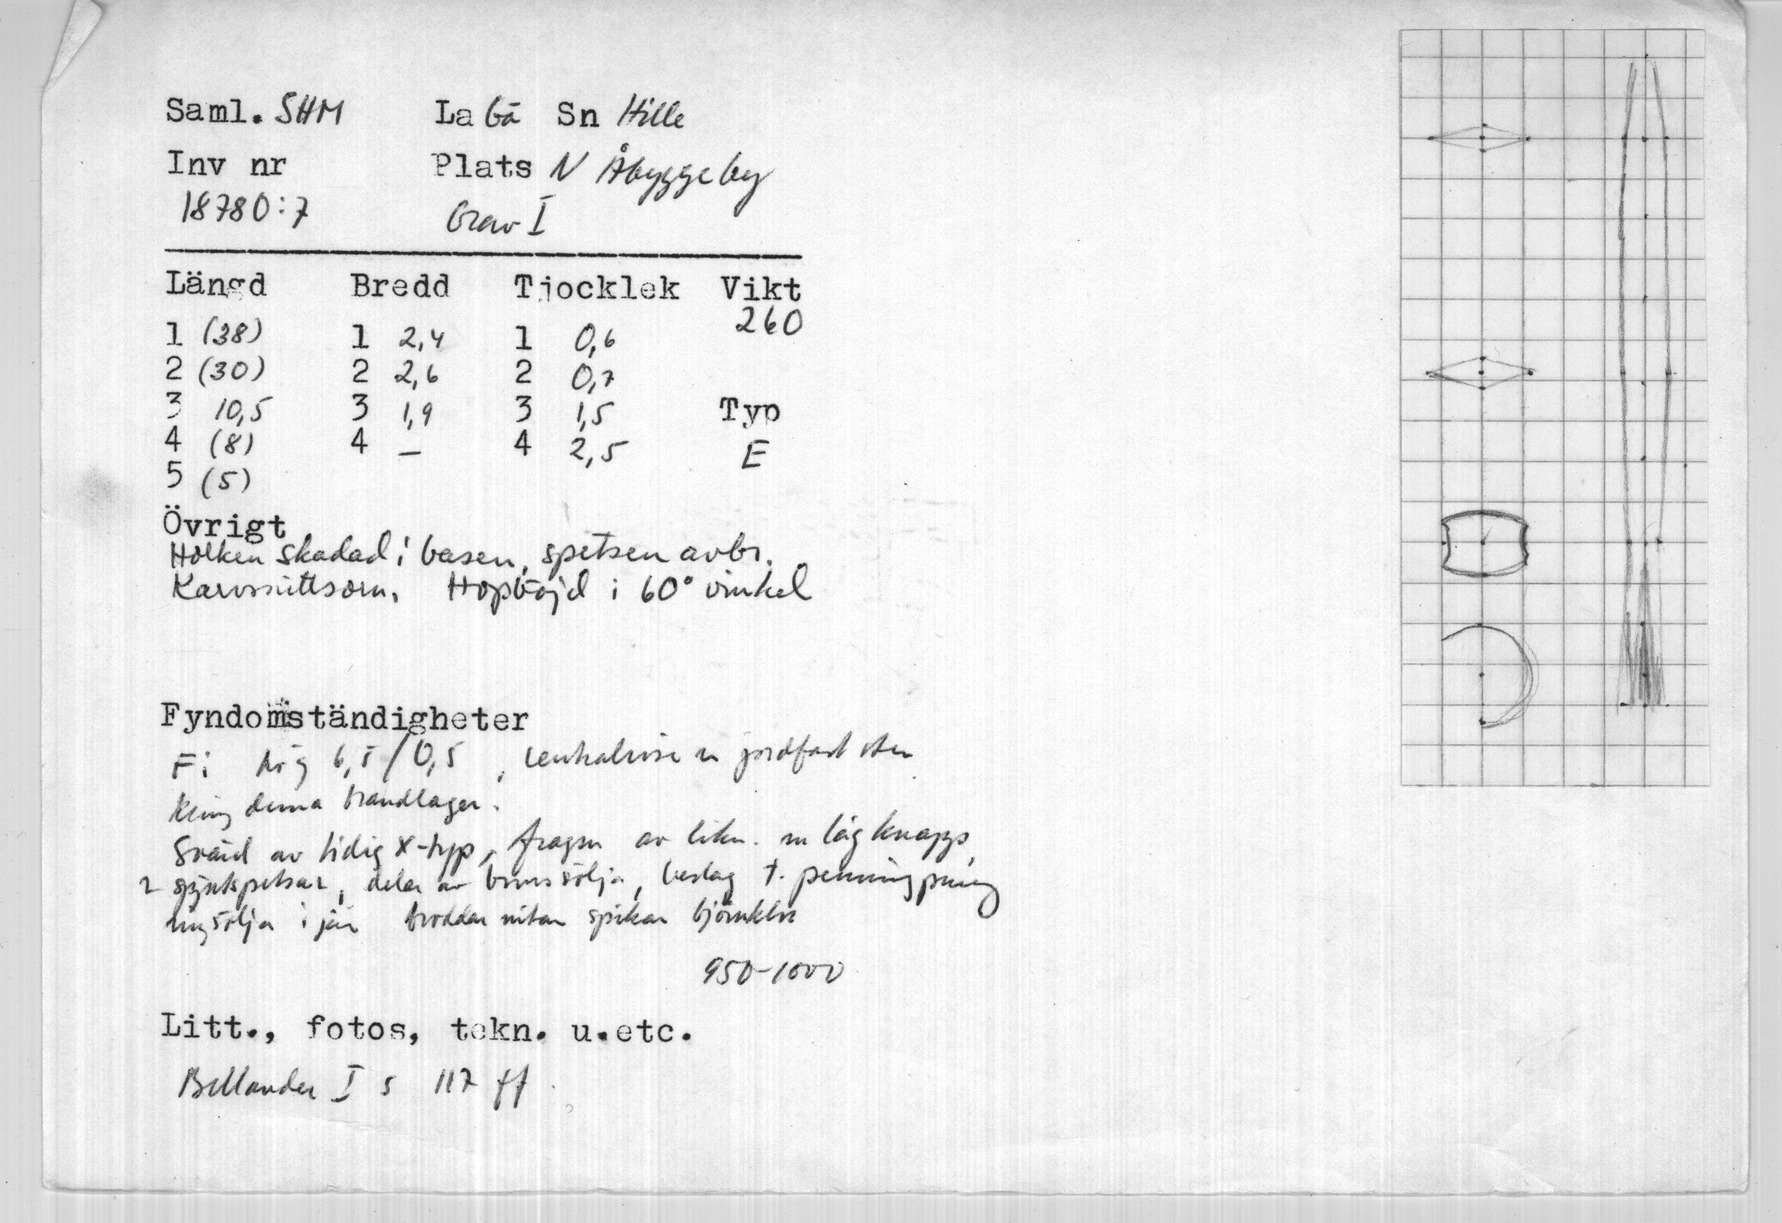 Saml. SHM La Gä Sn Hille
Inv nr Plats N Åbyggeby
18780:7 Grav I
Längd Bredd Tjocklek Vikt
260
1 (38) 1 2,4 1 0,6
2 (30) 2 2,6 2 0,7
3 10,5 3 1,9 3 1,5 Typ
4 (8) 4 – 4 2,5 E
5 (5)
Övrigt
Holken skadad i basen, spetsen avbr.
Hopböjd i 60° vinkel
Fyndomständigheter
Fi hög 6,5/0,5, centralröse m jordfast sten
kring denna brandlager.
Svärd av tidig X-typ, fragm av likn. m låg knapp,
2 spjutspetsar, delar av bronssölja, beslag t. penningpung
ringsölja i järn broddar nitar spikar björnklor
950-1000
Litt., fotos, tekn. u.etc.
Bellander I s 117 ff